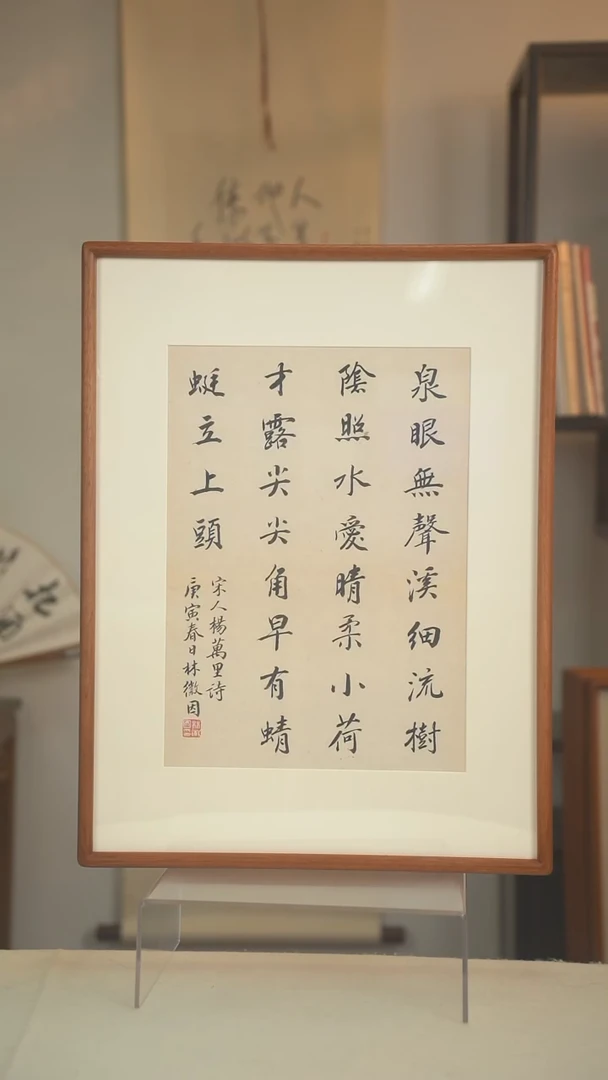 泉眼無聲溪細流樹
陰照水愛晴柔小荷
才露尖尖角早有蜻
蜓立上頭
宋人楊萬里詩
庚寅春日林徽因